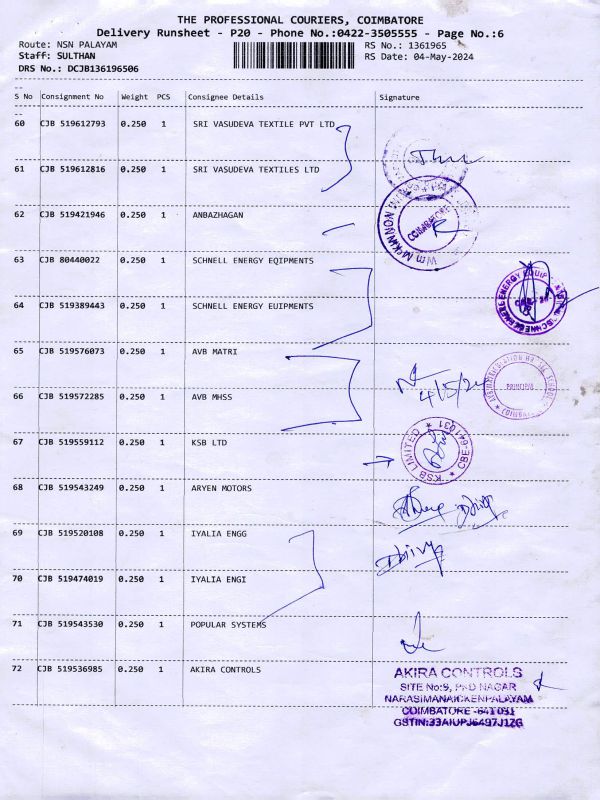 THE PROFESSIONAL COURIERS, COIMBATORE
Delivery Runsheet - P20 - Phone No.:0422-3505555 - Page No.:6
Route: NSN PALAYAM RS No.: 1361965
Staff: SULTHAN RS Date: 04-May-2024
DRS No.: DCJB136196506
S No Consignment No Weight PCS Consignee Details Signature
60 CJB 519612793 0.250 1 SRI VASUDEVA TEXTILE PVT LTD
61 CJB 519612816 0.250 1 SRI VASUDEVA TEXTILES LTD
62 CJB 519421946 0.250 1 ANBAZHAGAN
COIMBATORE
63 CJB 80440022 0.250 1 SCHNELL ENERGY EQIPMENTS
64 CJB 519389443 0.250 1 SCHNELL ENERGY EUIPMENTS
65 CJB 519576073 0.250 1 AVB MATRI
4/5/24
PRINCIPAL
66 CJB 519572285 0.250 1 AVB MHSS
67 CJB 519559112 0.250 1 KSB LTD
KSB LIMITED ★ CBE-641031 ★
68 CJB 519543249 0.250 1 ARYEN MOTORS
69 CJB 519520108 0.250 1 IYALIA ENGG
70 CJB 519474019 0.250 1 IYALIA ENGI
71 CJB 519543530 0.250 1 POPULAR SYSTEMS
72 CJB 519536985 0.250 1 AKIRA CONTROLS
AKIRA CONTROLS
SITE No:9, PKD NAGAR
NARASIMANAICKENPALAYAM
COIMBATORE -641 031
GSTIN:33AIUPJ6497J1ZG